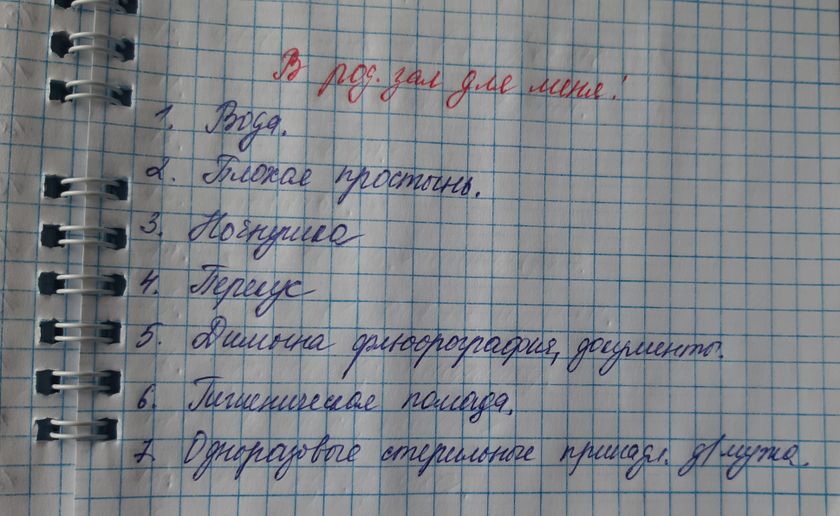 В род. зал для меня!
1. Вода.
2. Плохая простынь.
3. Ночнушка
4. Перекус
5. Димыча флюорография, документы.
6. Гигиеническая помада.
7. Одноразовые стерильные принадл. д/мужа.